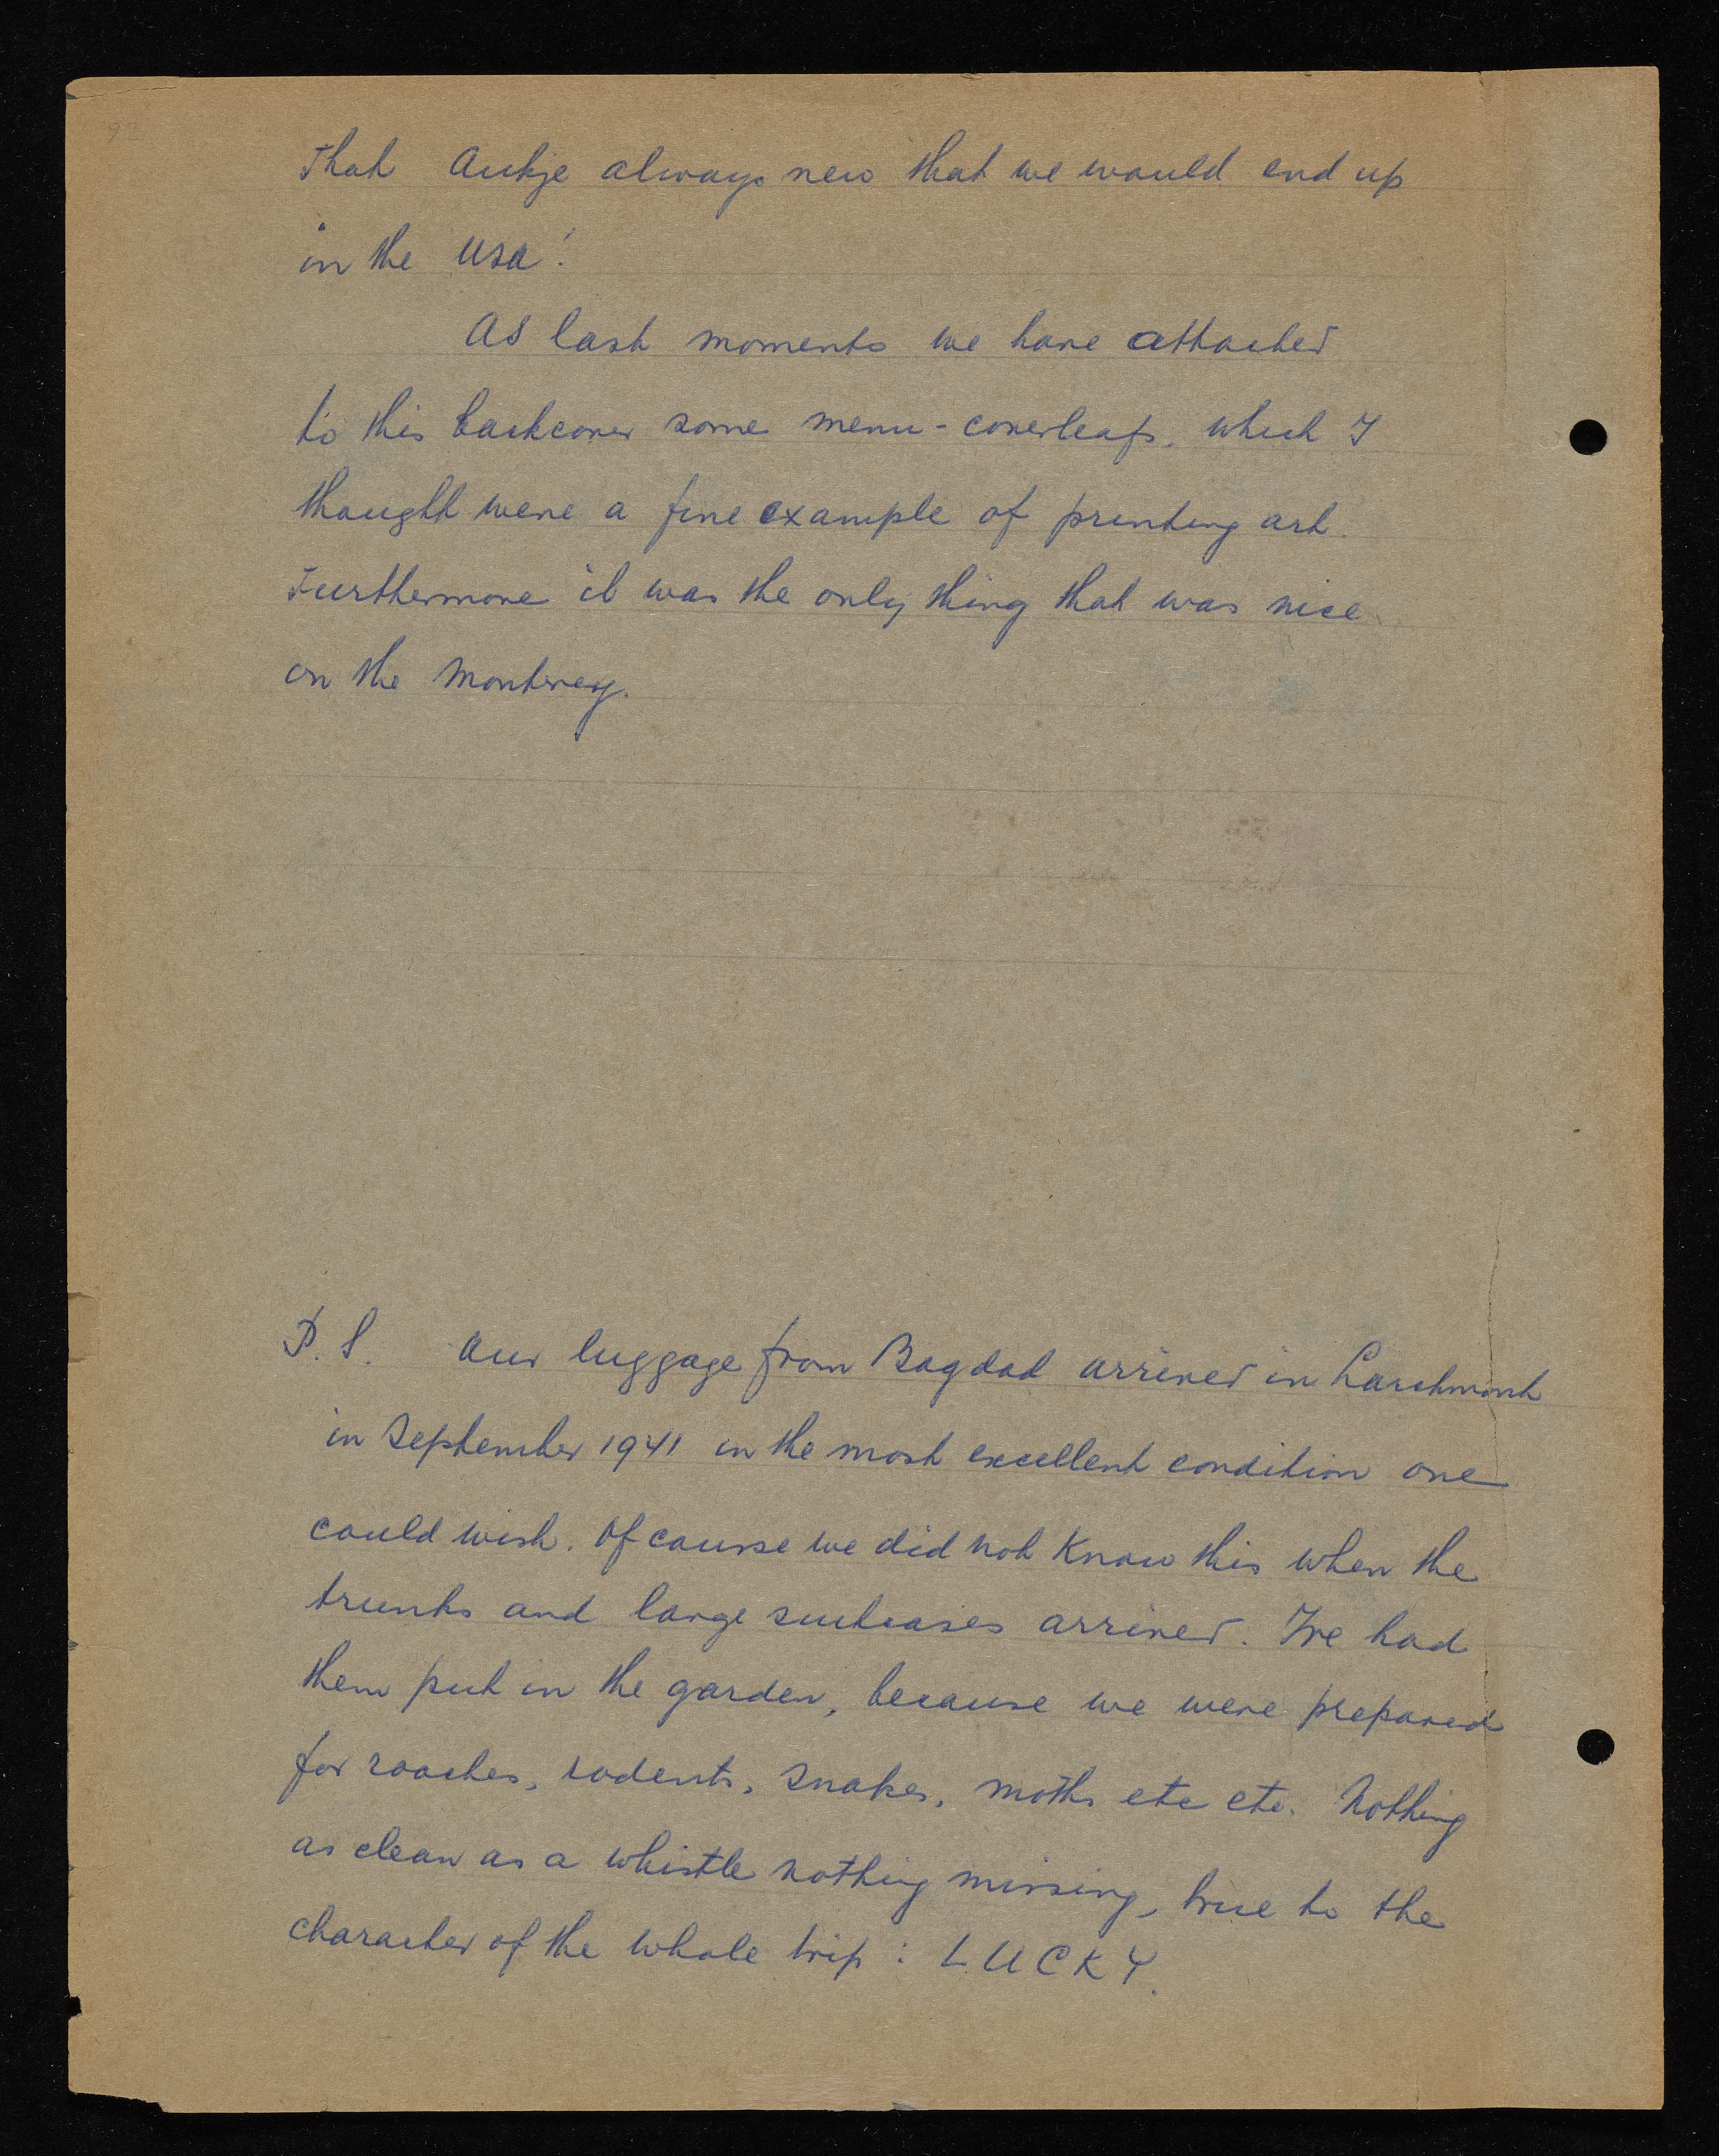 92
That Aukje always new that we would end up
in the USA!
As last moments we have attached
to this backcover some menu-coverleafs, which I
thought were a fine example of printing art.
Furthermore it was the only thing that was nice
on the Monterey.
P.S. Our luggage from Bagdad arrived in Larchmont
in September 1941 in the most excellent condition one
could wish. Of course we did not know this when the
trunks and large suitcases arrived. We had
them put in the garden, because we were prepared
for roaches, rodents, snakes, moths etc etc. Nothing
as clean as a whistle nothing missing, true to the
character of the whole trip: LUCKY.